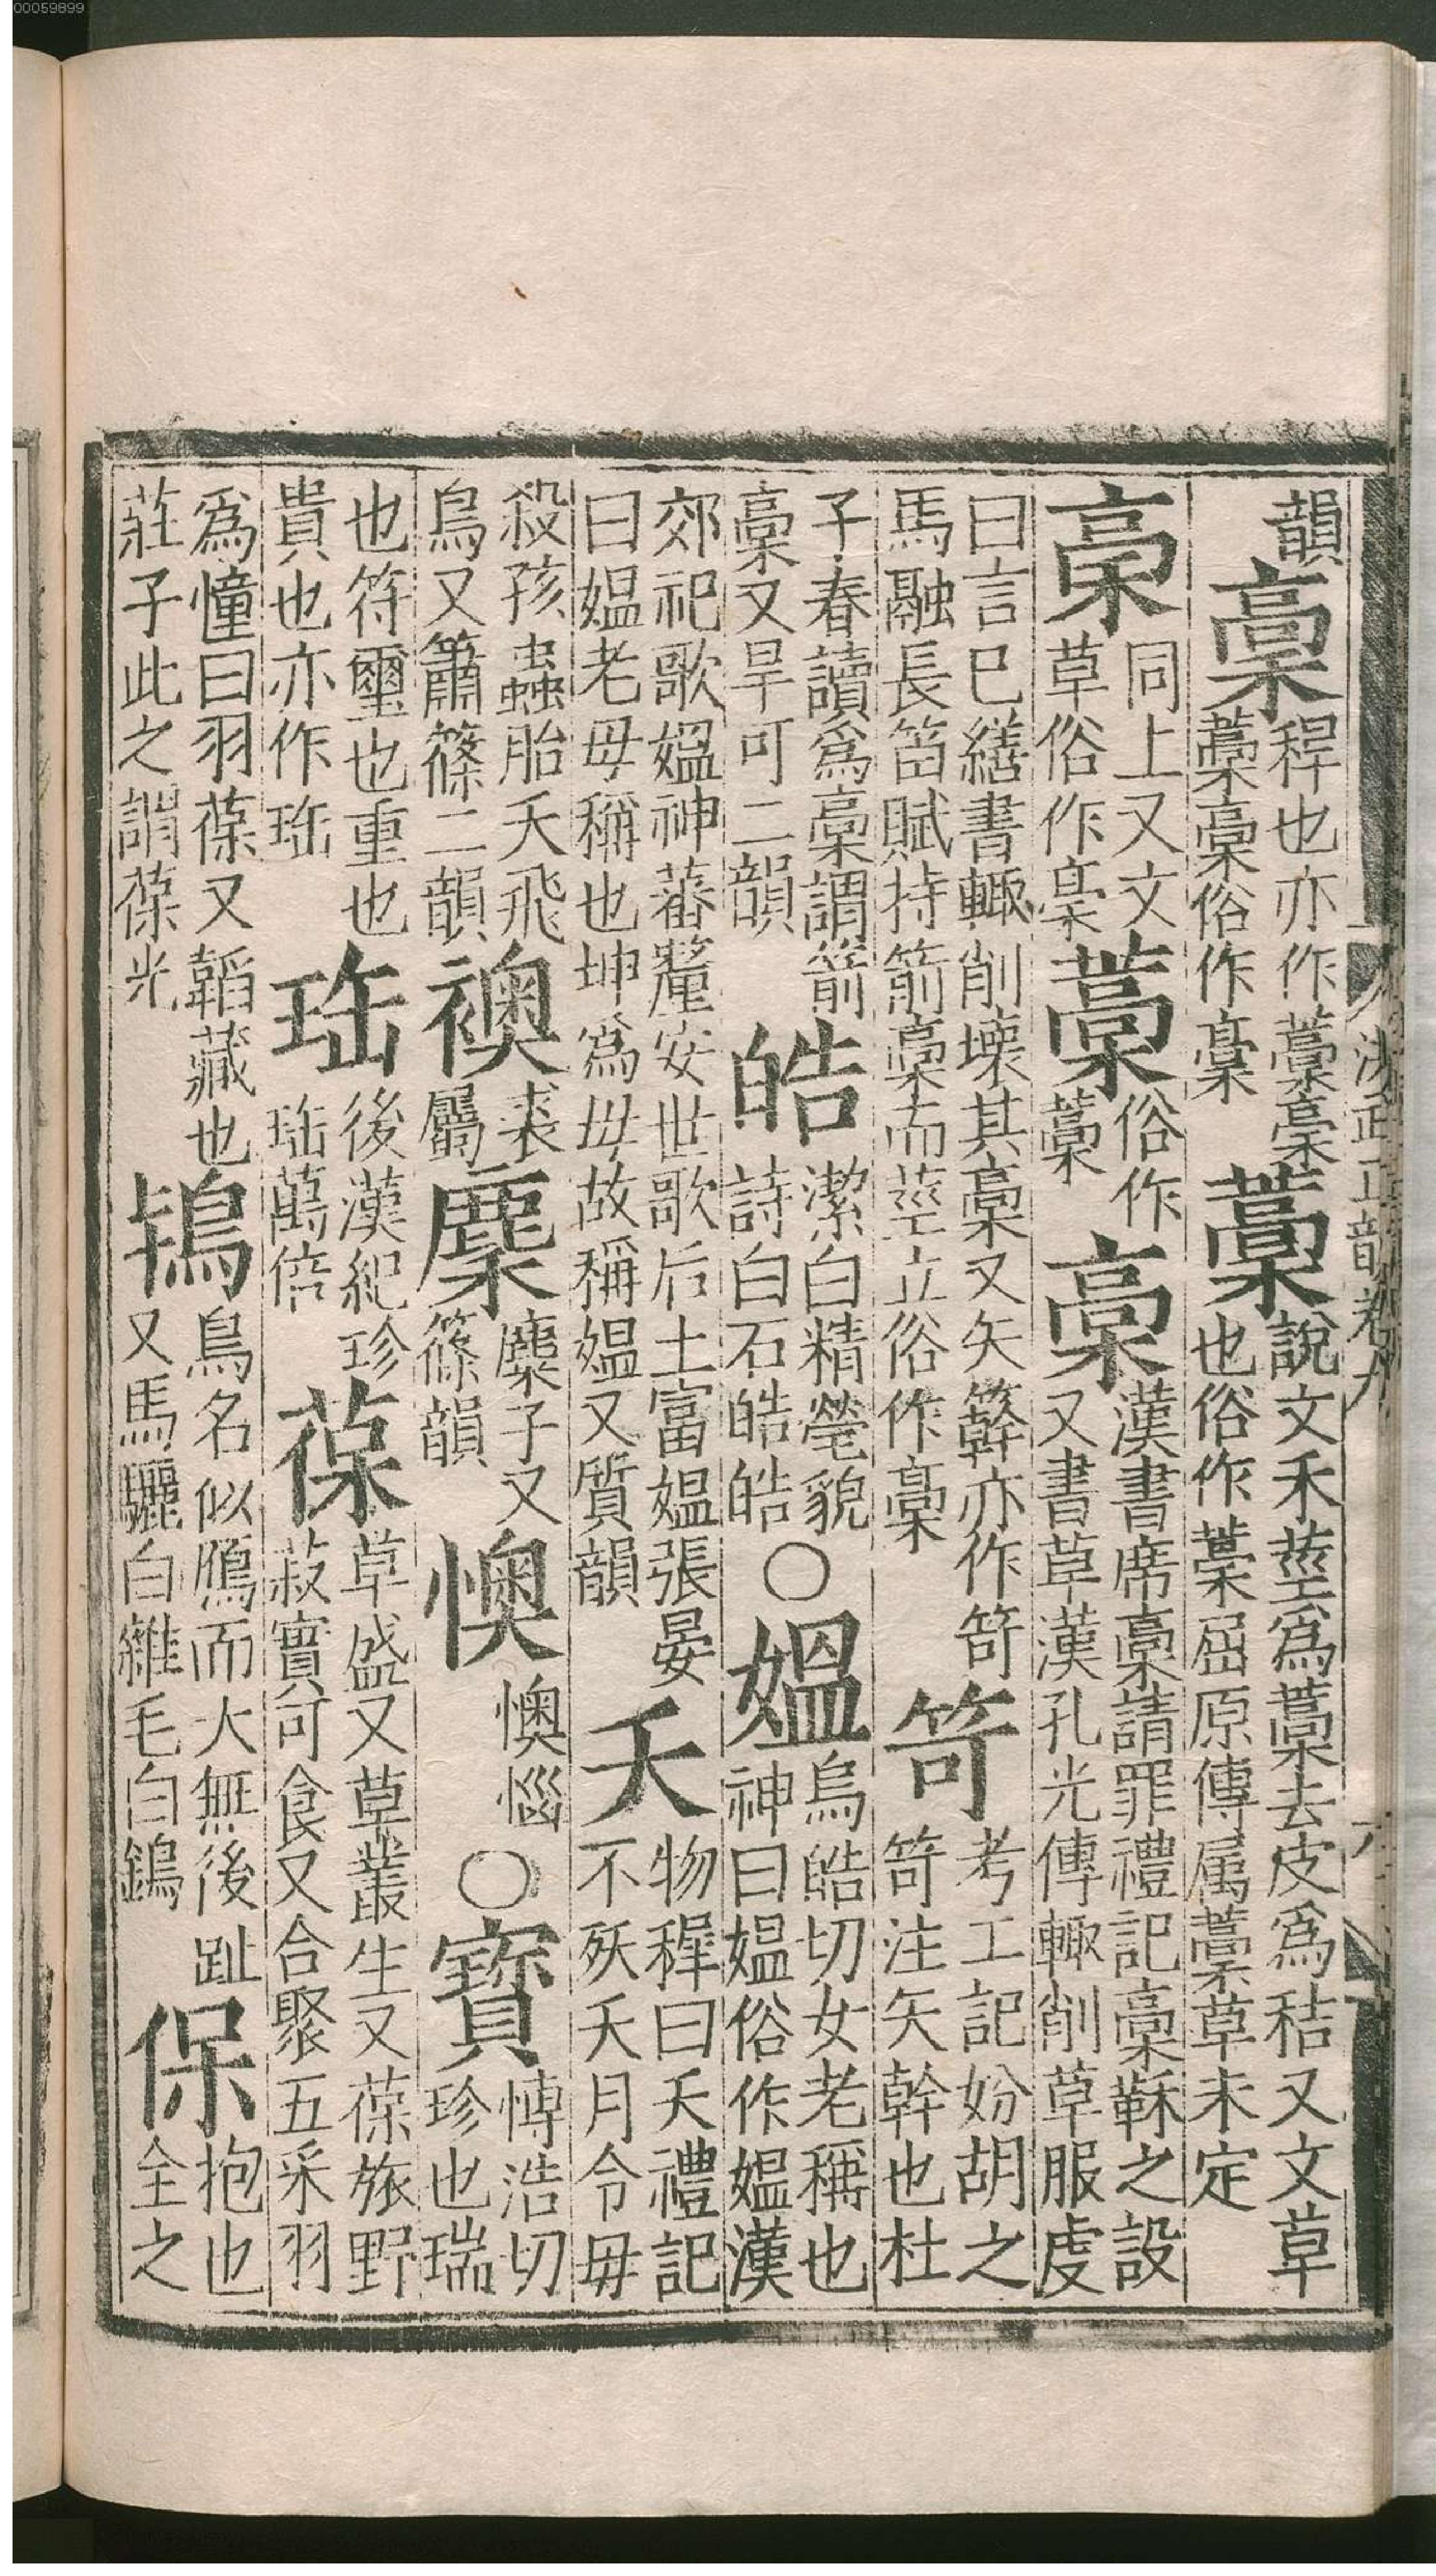 00059899
洪武正韻卷九
韻稾稈也亦作藁稾藳稾俗作稾藁說文禾莖爲藁去皮爲秸又文草也俗作藁屈原傳属藁草未定
稾同上又文草俗作稾藁俗作藁稾漢書席稾請罪禮記稾鞂之設又書草漢孔光傳輙削草服虔
曰言已繕書輙削壞其稾又矢簳亦作笴馬融長笛賦持箭稾而莖立俗作稾笴考工記妢胡之笴注矢幹也杜
子春讀爲稾謂箭稾又旱可二韻皓潔白精瑩貌詩白石皓皓○媪烏皓切女老稱也神曰媪俗作媼漢
郊祀歌媪神蕃釐安世歌后土富媪張晏曰媪老母稱也坤爲母故稱媪又質韻夭物穉曰夭禮記不殀夭月令毋
殺孩蟲胎夭飛鳥又簫篠二韻襖裘屬麇麋子又篠韻懊懊惱○寶愽浩切珍也瑞
也符璽也重也貴也亦作珤珤後漢紀珍珤萬倍葆草盛又草叢生又葆旅野菽實可食又合聚五采羽
爲憧曰羽葆又韜藏也莊子此之謂葆光鴇鳥名似鴈而大無後趾又馬驪白雜毛曰鴇保抱也全之